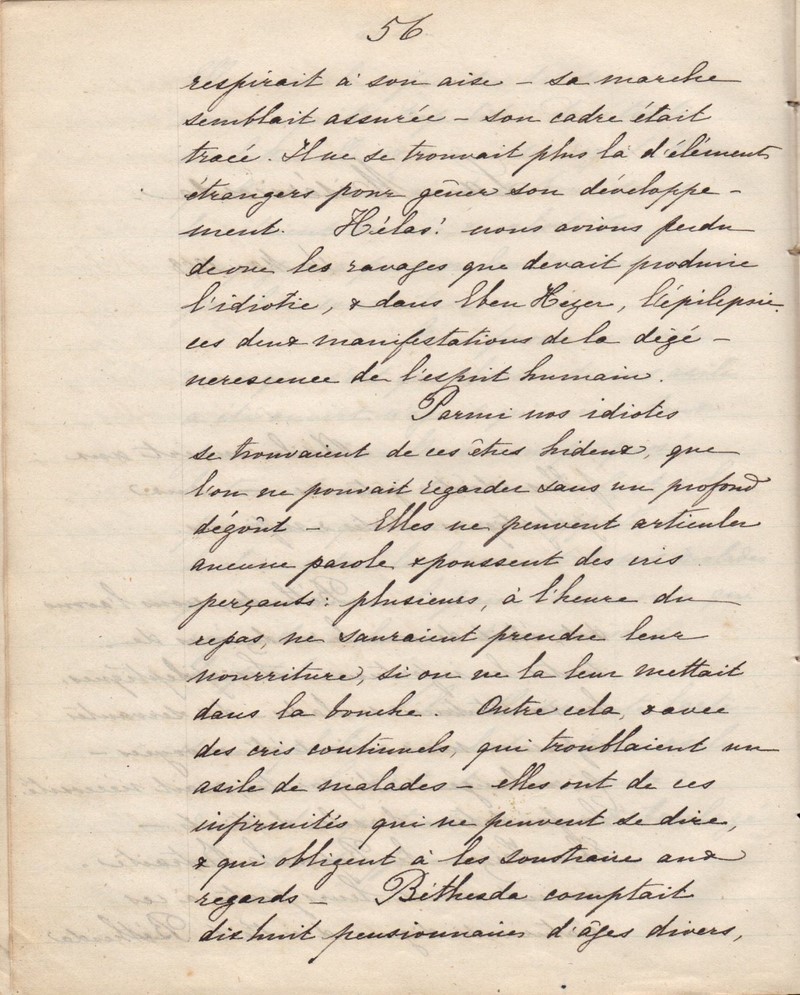 56
respirait à son aise – sa marche
semblait assurée – son cadre était
tracé. Il ne se trouvait plus là d'éléments
étrangers pour gêner son développe –
ment. Hélas! nous avions perdu
de vue les ravages que devait produire
l'idiotie, & dans Eben Hézer, l'épilepsie.
ces deux manifestations de la dégé –
nerescence de l'esprit humain.
Parmi nos idiotes
se trouvaient de ces êtres hideux, que
l'on ne pouvait regarder sans un profond
dégoût – Elles ne peuvent articuler
aucune parole & poussent des cris
perçants: plusieurs, à l'heure du
repas, ne sauraient prendre leur
nourriture, si on ne la leur mettait
dans la bouche. Outre cela, & avec
des cris continuels, qui troublaient un
asile de malades – elles ont de ces
infirmités qui ne peuvent se dire,
& qui obligent à les soustraire aux
regards – Béthesda comptait
dix huit pensionnaires d'âges divers,